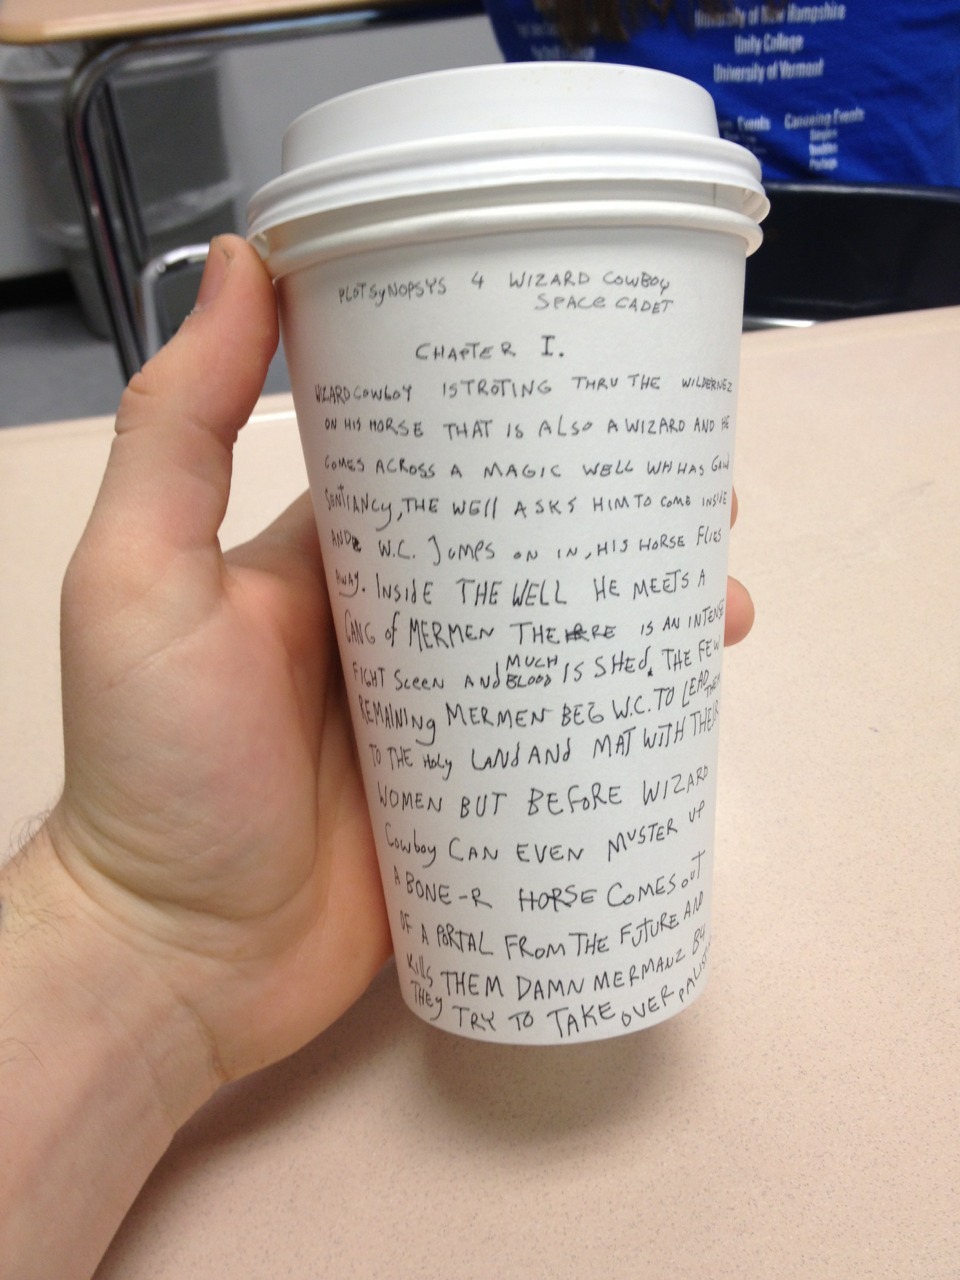 University of New Hampshire
Unity College
University of Vermont
Events Canoeing Events
Singles
Doubles
Portage
PLOTSyNOPSYS 4 WIZARD COWBOY
SPACE CADET
CHAPTER I.
WIZARDCOWBOY ISTROTING THRU THE WILDERNEZ
ON HIS HORSE THAT IS ALSO A WIZARD AND HE
COMES ACROSS A MAGIC WELL WH HAS GAIN
SENTIANCy, THE WEll ASKS HIM TO COME INSIDE
AND W.C. JUMPS ON IN, HIS HORSE FLIES
AWAY. INSIdE THE WELL HE MEETS A
GANG of MERMEN THERE IS AN INTENSE
FIGHT SCEEN ANd MUCH BLOOD IS SHEd. THE FEW
REMAINING MERMEN BEG W.C. TO LEAD THEM
TO THE HOLy LANd ANd MAT WITH THEIR
WOMEN BUT BEFORE WIZARD
COWBOy CAN EVEN MUSTER UP
A BONE-R HORSE COMES OUT
OF A PORTAL FROM THE FUTURE AND
KIllS THEM DAMN MERMANZ BY
THEY TRY TO TAKE OVER